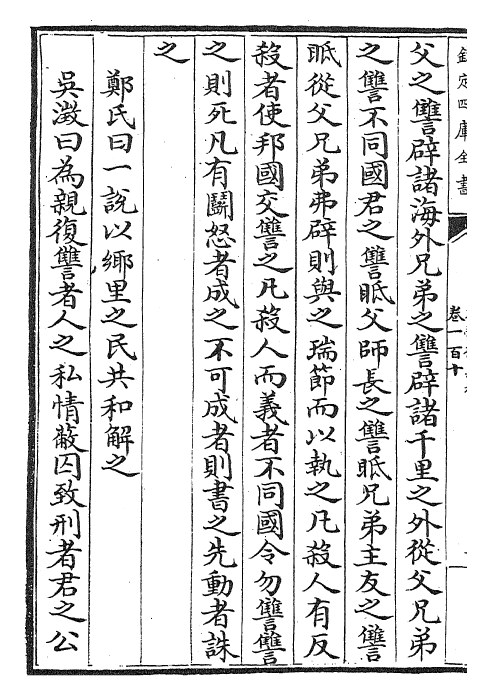 欽定四庫全書
卷一百十
父之讐辟諸海外兄弟之讐辟諸千里之外從父兄弟
之讐不同國君之讐眂父師長之讐眂兄弟主友之讐
眂從父兄弟弗辟則與之瑞節而以執之凡殺人有反
殺者使邦國交讐之凡殺人而義者不同國令勿讐讐
之則死凡有鬬怒者成之不可成者則書之先動者誅
之
鄭氏曰一說以鄉里之民共和解之
吳澂曰為親復讐者人之私情蔽囚致刑者君之公